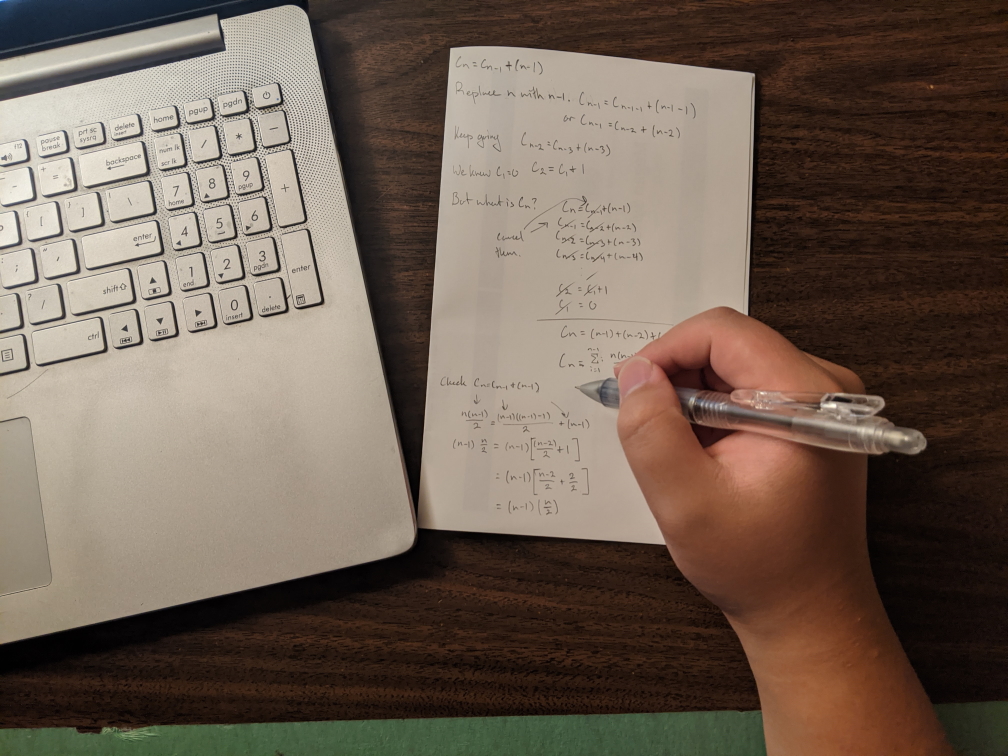 f12
pause break
prt sc sysrq
delete insert
home
pgup
pgdn
backspace
num lk scr lk
/
*
-
- + =
7 home
8
9 pgup
+
{ [
} ]
| \
4
5
6
enter
: ;
" '
1 end
2
3 pgdn
enter
? /
shift
0 insert
. delete
ctrl
Cn = Cn-1 + (n-1)
Replace n with n-1. Cn-1 = Cn-1-1 + (n-1-1)
or Cn-1 = Cn-2 + (n-2)
Keep going Cn-2 = Cn-3 + (n-3)
We know C1=0 C2 = C1 + 1
But what is Cn?
cancel them.
Cn = Cn-1 + (n-1)
Cn-1 = Cn-2 + (n-2)
Cn-2 = Cn-3 + (n-3)
Cn-3 = Cn-4 + (n-4)
C2 = C1 + 1
C1 = 0
Cn = (n-1) + (n-2) + (
Cn = n-1 Σ i=1 i n(n-1)
Check Cn = Cn-1 + (n-1)
n(n-1)/2 = (n-1)((n-1)-1)/2 + (n-1)
(n-1) n/2 = (n-1) [(n-2)/2 + 1]
= (n-1) [n-2/2 + 2/2]
= (n-1) (n/2)